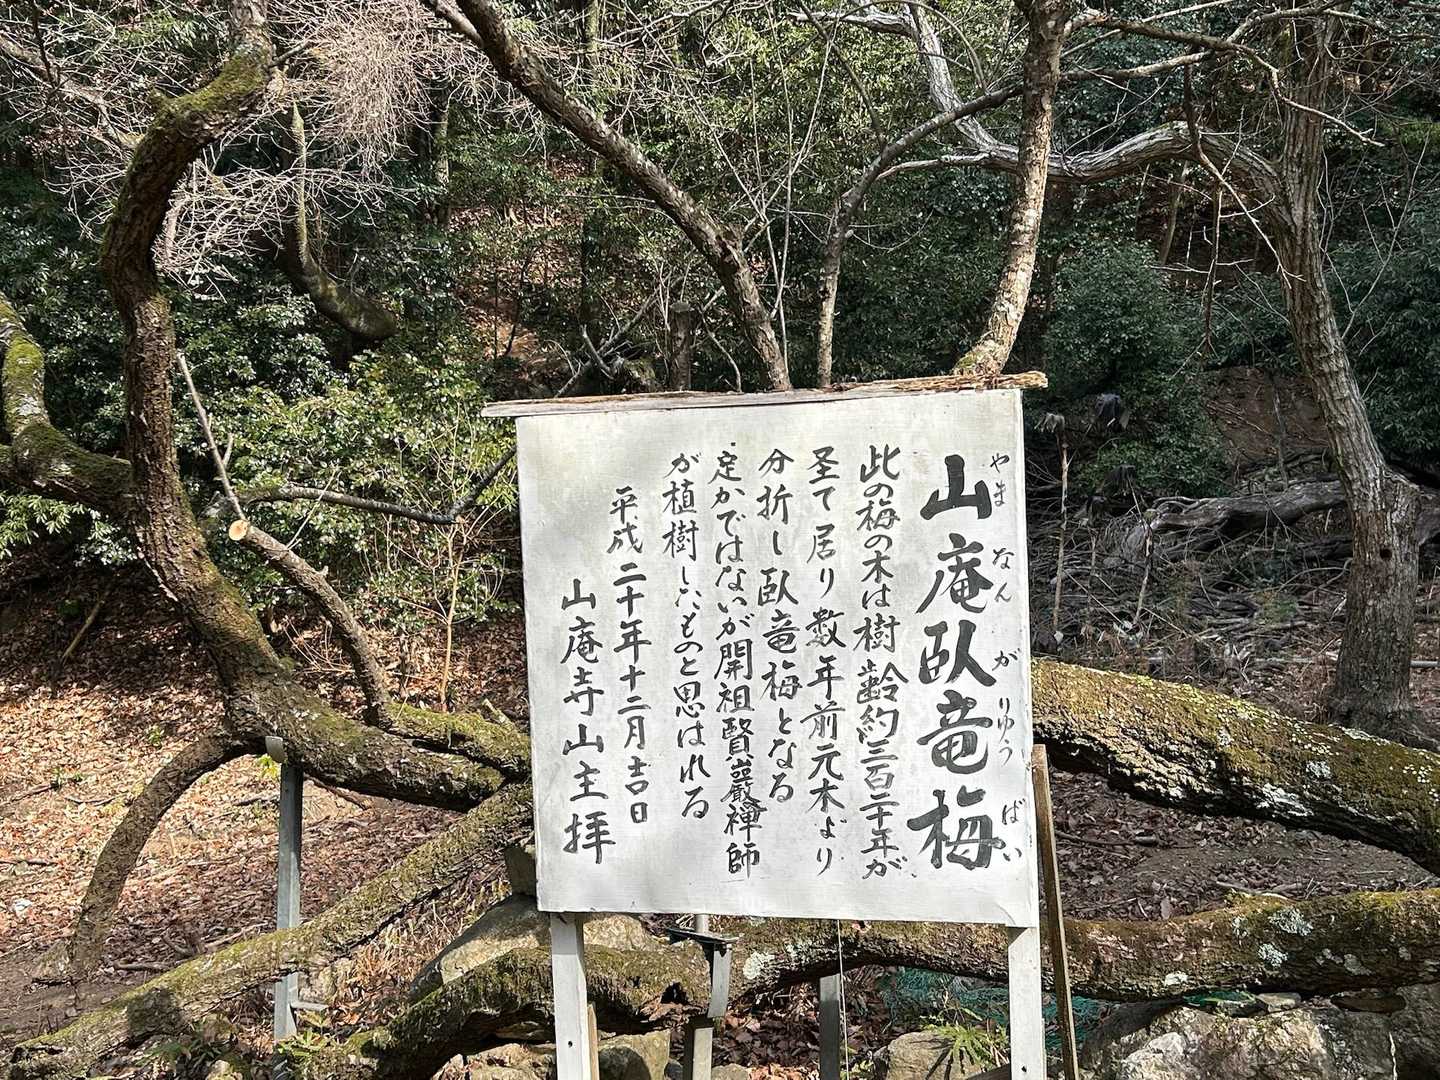 山庵臥竜梅
やまなんがりゆうばい
此の梅の木は樹齢約三百二十年が
圣て居り数年前元木より
分折し臥竜梅となる
定かではないが開祖賢巖禅師
が植樹したものと思はれる
平成二十年十二月吉日
山庵寺山主拝